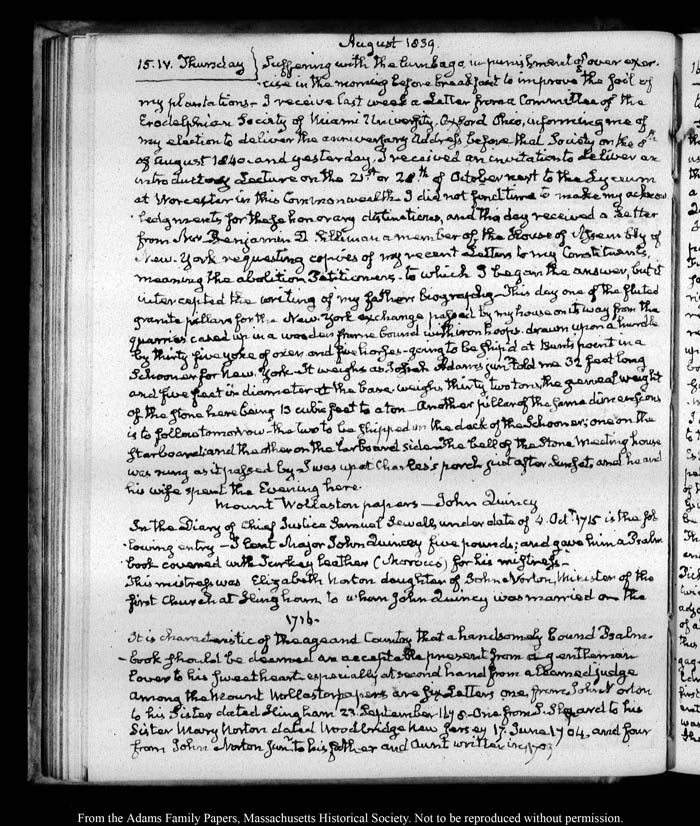 August 1839.
15. IV. Thursday } Suffering with the lumbago, in punishment of over exer-
cise in the morning before breakfast to improve the soil of
my plantations. I receive last week a Letter from a Committee of the
Erodelphian Society of Miami University, Oxford Ohio, informing me of
my election to deliver the anniversary Address before that Society on the 8th
of August 1840. and yesterday, I received an invitation to deliver an
introductory Lecture on the 21st or 28th of October next to the Lyceum
at Worcester in this Commonwealth. I did not fail time to make my acknow
ledgments for these honorary distinctions, and this day received a Letter
from Mr Benjamin D. Silliman a member of the House of Assembly of
New-York requesting copies of my recent Letters to my Constituents,
meaning the abolition Petitioners. to which I began the answer, but it
intercepted the writing of my father's biography. This day one of the fluted
granite pillars for the New-York exchange passed by my house on its way from the
quarries cased up in a wooden frame bound with iron hoops. drawn upon a hurdle
by thirty five yoke of oxen and five horses. going to be ship'd at Bents point in a
Schooner for New York. It weighs as Josiah Adams junr. told me 32 feet long
and five feet in diameter at the base. weighs thirty two tons, the general weight
of the stone here being 13 cubic feet to a ton. Another pillar of the same dimensions
is to follow tomorrow. the two to be shipped on the deck of the Schooner; one on the
starboard; and the other on the larboard side. The bell of the Stone Meeting house
was rung as it passed by. I was up at Charles's porch just after Sunset, and he and
his wife spent the Evening here.
Mount Wollaston papers — John Quincy
In the Diary of Chief Justice Samuel Sewall, under date of 4. Octr. 1715 is the fol
lowing entry — I lent Major John Quincey five pounds; and gave him a Psalm
book covered with Turkey leather (Morocco) for his mistress.
This mistress was Elizabeth Norton daughter of John Norton, Minister of the
first Church at Hingham, to whom John Quincy was married on the
1716.
It is characteristic of the age and Country that a handsomely bound Psalm-
book should be deemed an acceptable present from a gentleman
Lover to his Sweetheart. especially at second hand from a Learned Judge
Among the Mount Wollaston papers are six Letters, one from John Norton
to his Sister dated Hingham 23. September 1678. One from S. Shepard to his
Sister Mary Norton dated Woodbridge New Jersey 17. June 1704, and four
from John Norton Junr. to his father and Aunt written in 1703
From the Adams Family Papers, Massachusetts Historical Society. Not to be reproduced without permission.